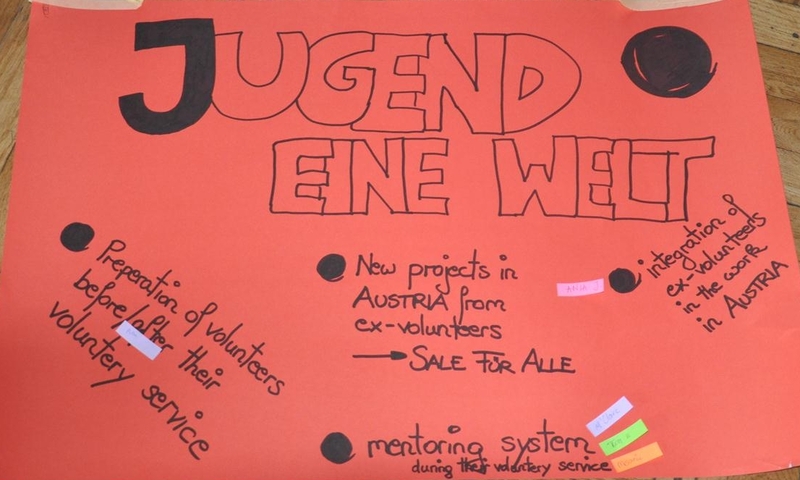 JUGEND
EINE WELT
Preperation of volunteers
before/after their
voluntery service
New projects in
AUSTRIA from
ex-volunteers
→ SALE FÜR ALLE
ANJA
integration of
ex-volunteers
in the work
in AUSTRIA
mentoring system
during their voluntery service